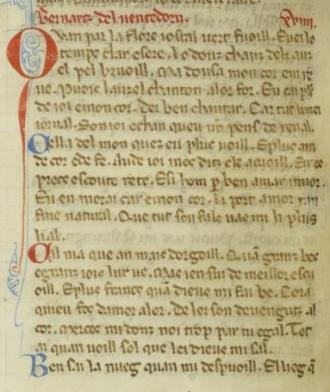 Bernartz del uentedorn. xviii.
Quan par la flors iostal uert fuoill. Euei lo
temps clar e sere. lo douz chanz delz auz
el pel bruoill. Ma dousa mon cor em re
ue. puois lauzel chanton alor for. Eu can plus
de ioi e mon cor. dei ben chantar. Car tut mei
iornal. Son ioi e chan queu non pens de ren al.
Cella del mon que eu plus uoill. E plus am
de cor e de fe. Au de ioi mos ditz e ls acuoill. E mos
precs escoute rete. E si hom per ben amar mor.
Eu en morai car e mon cor. li port amor tan
fine natural. Que tut son fals uas mi li plus
leial.
mal ma que an mais dorgoill. Quan granz bes
e granz iois lur ue. Mas ieu sui de meillor es
oill. E plus francs quan dieus mi fai be. Cora
quieu fos damor alor. De lor son uengutz al
cor. merces midonz non trop par ni egal. Tot
ai quan uoill sol que lei dieus mi sal.
Ben sai la nueg quan mi despuoill. El lieg q